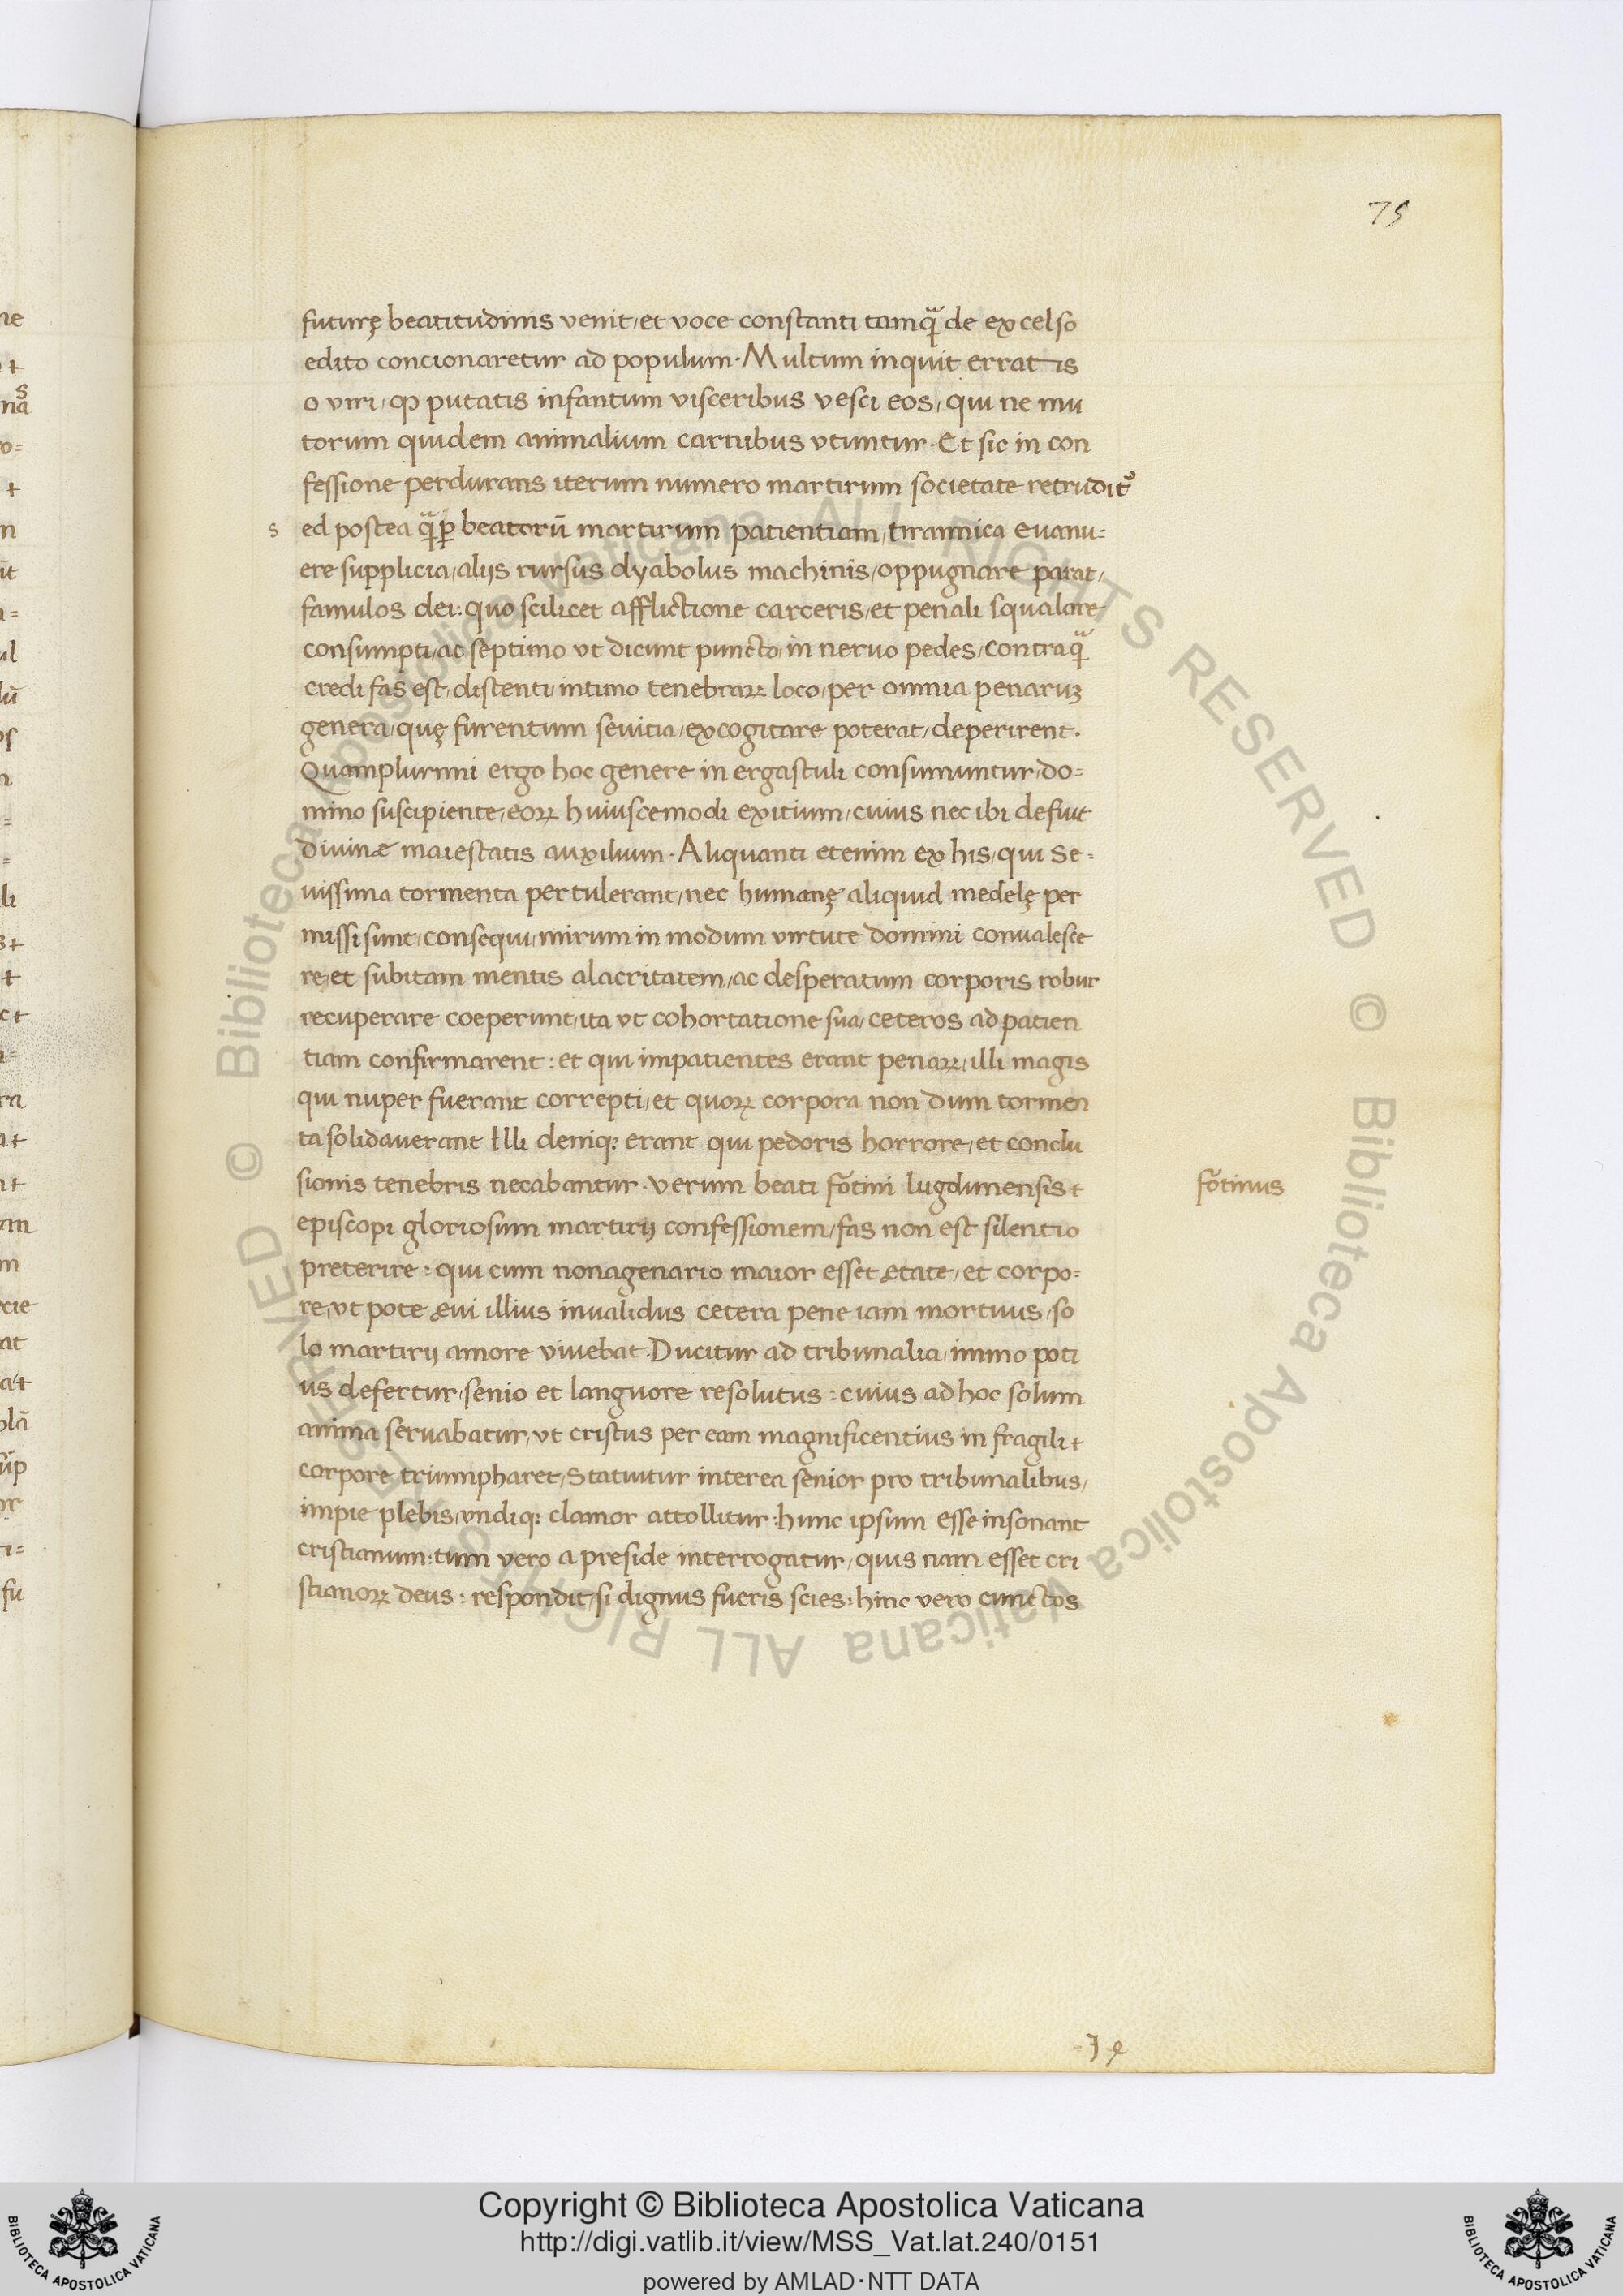 75
futurę beatitudinis venit, et voce constanti tamq̃ de excelso
edito concionaretur ad populum. Multum inquit erratis
o viri, qp putatis infantum visceribus vesci eos, qui ne mu
torum quidem animalium carnibus vtuntur. Et sic in con
fessione perdurans iterum numero martirum societate retrudit᷒
s ed postea q̃ ꝑ beatorũ martirum patientiam, tirannica evanu=
ere supplicia, alijs rursus dyabolus machinis, oppugnare parat,
famulos dei: quo scilicet afflictione carceris, et penali squalore
consumpti, ac septimo vt dicunt puncto, in neruo pedes, contraq̃
credi fas est, distenti, intimo tenebraꝝ loco, per omnia penaruꝫ
genera, quę furentum seuitia, excogitare poterat, deperirent.
Quamplurimi ergo hoc genere in ergastuli consumuntur, do=
mino suscipiente, eoꝝ huiuscemodi exitium, cuius nec ibi defuit
diuinæ maiestatis auxilium. Aliquanti etenim ex his, qui se=
uissima tormenta pertulerant, nec humanę aliquid medelę per
missi sunt, consequi, mirum in modum virtute domini conualesce
re, et subitam mentis alacritatem, ac desperatum corporis robur
recuperare coeperunt, ita vt cohortatione sua, ceteros ad patien
tiam confirmarent: et qui impatientes erant penaꝝ, illi magis
qui nuper fuerant correpti, et quoꝝ corpora non dum tormen
ta solidauerant Illi deniq: erant qui pedoris horrore, et conclu
sionis tenebris necabantur. Verum beati fõtini lugdunensis+
fõtinus
episcopi gloriosum martirij confessionem, fas non est silentio
preterire: qui cum nonagenario maior esset ętate, et corpo=
re, vt pote ęui illius inualidus cetera pene iam mortuus, so
lo martirij amore viuebat. Ducitur ad tribunalia, immo poti
us defertur, senio et languore resolutus: cuius ad hoc solum
anima seruabatur, vt cristus per eam magnificentius in fragili+
corpore triumpharet, Statuitur interea senior pro tribunalibus,
impie plebis, vndiq: clamor attollitur: hunc ipsum esse insonant
cristianum: tum vero a preside interrogatur, quis nam esset cri
stianoꝝ deus: respondit, si dignus fueris scies: hinc vero cunctos
© Biblioteca Apostolica Vaticana ALL RIGHTS RESERVED © Biblioteca Apostolica Vaticana ALL RIGHTS RESERVED
Copyright © Biblioteca Apostolica Vaticana
http://digi.vatlib.it/view/MSS_Vat.lat.240/0151
powered by AMLAD·NTT DATA
BIBLIOTECA APOSTOLICA VATICANA
BIBLIOTECA APOSTOLICA VATICANA